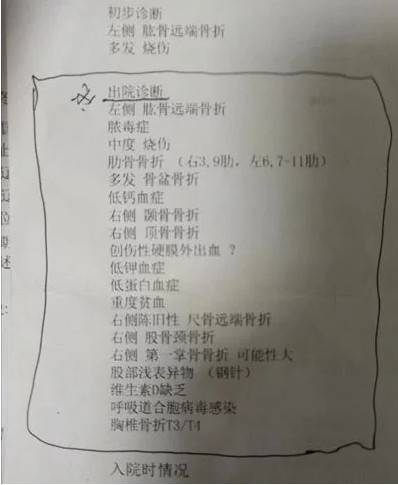 初步诊断
左侧 肱骨远端骨折
多发 烧伤
出院诊断
左侧 肱骨远端骨折
脓毒症
中度 烧伤
肋骨骨折 （右3,9肋，左6,7-11肋）
多发 骨盆骨折
低钙血症
右侧 颞骨骨折
右侧 顶骨骨折
创伤性硬膜外出血 ？
低钾血症
低蛋白血症
重度贫血
右侧陈旧性 尺骨远端骨折
右侧 股骨颈骨折
右侧 第一掌骨骨折 可能性大
股部浅表异物 （钢针）
维生素D缺乏
呼吸道合胞病毒感染
胸椎骨折T3/T4
入院时情况